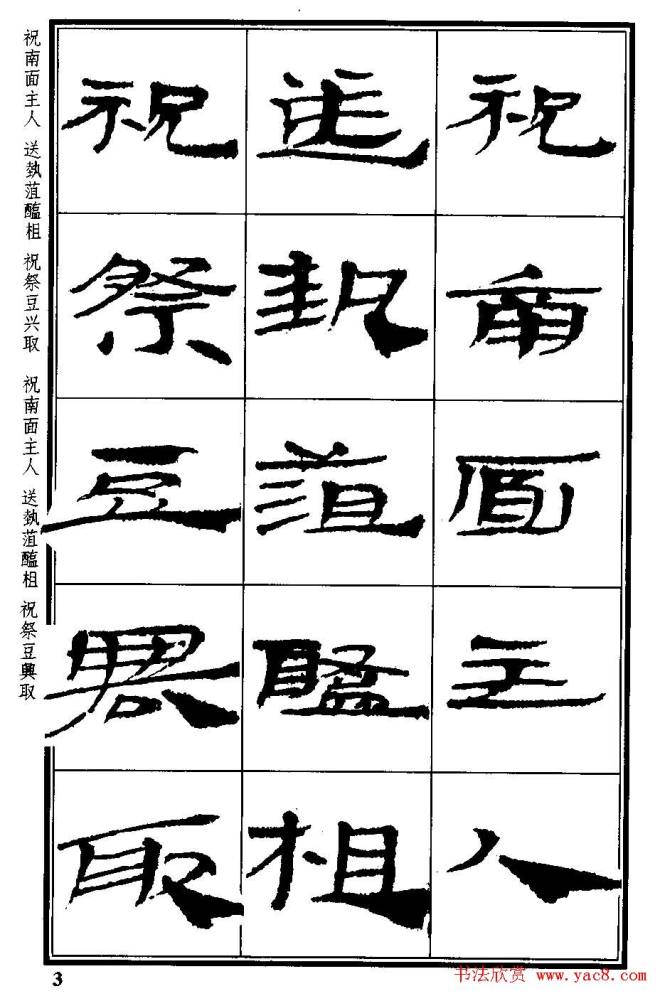 祝南面主人
送執菹醢柤
祝祭豆興取
祝南面主人 送執菹醢柤 祝祭豆兴取
祝南面主人 送執菹醢柤 祝祭豆興取
3
书法欣赏 www.yac8.com